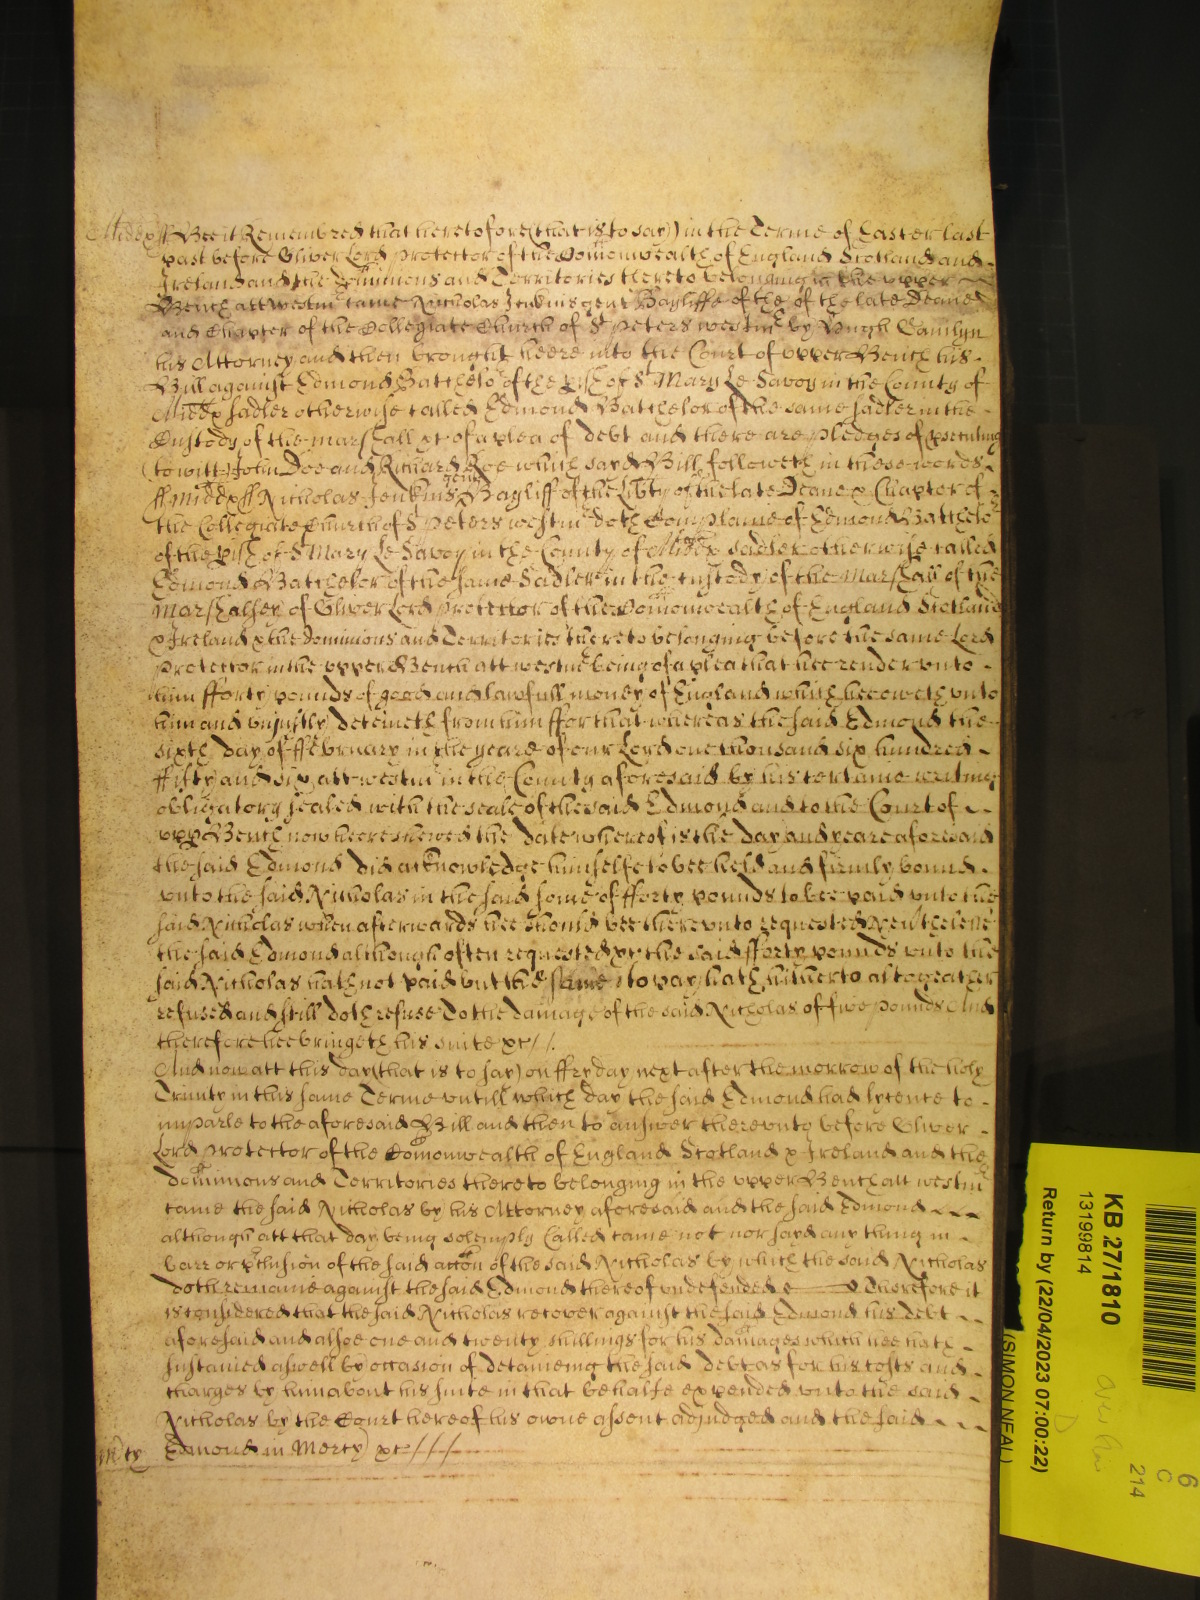 Midđx ss Bee it Remembred that heretofore (that is to say) in the Terme of Easter last
past before Oliver Lord Protector of the Comonwealth of England Scotland and
Ireland and the Dominions and Territories thereto belonging in the upper
Bench att Westm̄ came Nicholas Jenkins gent Bayliffe of the of the late Deane
and Chapter of the Collegiate Church of St Peters westm̄ by Hugh
his Attorney and then brought heere into the Court of upper Bench his
Bill against Edmond Batchelor of the pish of St Mary Le Savoy in the County of
Midđx Sadler otherwise called Edmond Batchelor of the same Sadler in the
Custody of the marshall &c of a plea of debt and there are pledges of psecuting
(to witt) John Doe and Richard Roe which sayd Bill followeth in these words
ss Midđx ss Nicholas Jenkins gent Bayliff of the Libty of the late Deane & Chapter of
the Collegiate Church of St Peters westm̄ doth Complaine of Edmond Batchelor
of the pish of St Mary Le Savoy in the County of Midđx Sadler otherwise called
Edmond Batchelor of the same Sadler in the custody of the Marshall of the
Marshalsey of Oliver Lord Protector of the Comonwealth of England Scotland
& Ireland & the Dominions and Territories thereto belonging before the same Lord
Protector in the upper Bench att westm̄ being of a plea that hee render unto
him fforty pounds of good and lawfull money of England which hee oweth unto
him and unjustly deteineth from him ffor that whereas the said Edmond the
sixth day of ffebruary in the yeare of our Lord one thousand six hundred
ffifty and six att westm̄ in the County aforesaid by his certaine writing
obligatory sealed with the seale of the said Edmond and to the Court of
upp Bench now heere shewed the date whereof is the day and yeare aforesaid
the said Edmond did acknowledge himselfe to bee held and firmly bound
unto the said Nicholas in the said some of fforty pounds to bee paid unto the
said Nicholas when afterwards hee should bee thereunto requested Nevthelesse
the said Edmond although often requested &c the said fforty pounds unto the
said Nicholas hath not paid but the same to pay hath hitherto altogeather
refused and still doth refuse To the damage of the said Nicholas of five pounds And
therefore hee bringeth his suite &c //.
And now att this day (that is to say) on ffryday next after the morrow of the holy
Trinity in this same Terme untill which day the said Edmond had lycence to
imparle to the aforesaid Bill and then to answer thereunto before Oliver
Lord Protector of the Comonwealth of England Scotland & Ireland and the
dominions and Territories thereto belonging in the upper Bench att westm̄
came the said Nicholas by his Attorney aforesaid and the said Edmond
although att that day being solemply Called came not nor sayd any thing in
barr or pclusion of the said accōn of the said Nicholas by which the said Nicholas
doth remaine against the said Edmond thereof undefended Therefore it
is considered that the said Nicholas recover against the said Edmond his debt
aforesaid and alsoe one and twenty shillings for his damages which hee hath
sustained aswell by occasion of deteineing the said debt as for his costs and
charges by him about his suite in that behalfe expended unto the said
Nicholas by the Court here of his owne assent adjudged and the said
Edmond in Mercy &c ///
m̄cy
KB 27/1810
13199814
Return by (22/04/2023 07:00:22)
(SIMON NEAL)
D
6
C
214